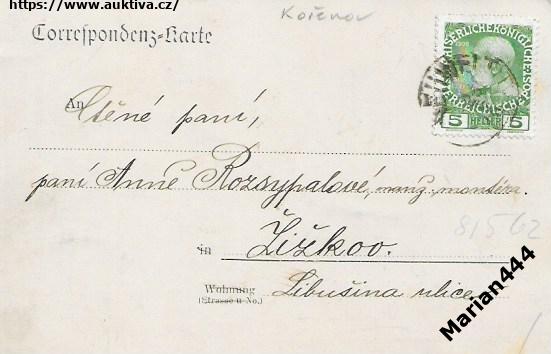 https://www.auktiva.cz/
Kořenov
Correspondenz-Karte
5 HELLER 5
An Ctěné paní,
paní Anně Rozsypalové, manž. montéra.
81562
in Žižkov.
Wohnung
(Strasse u No.)
Libušina ulice
Marian444